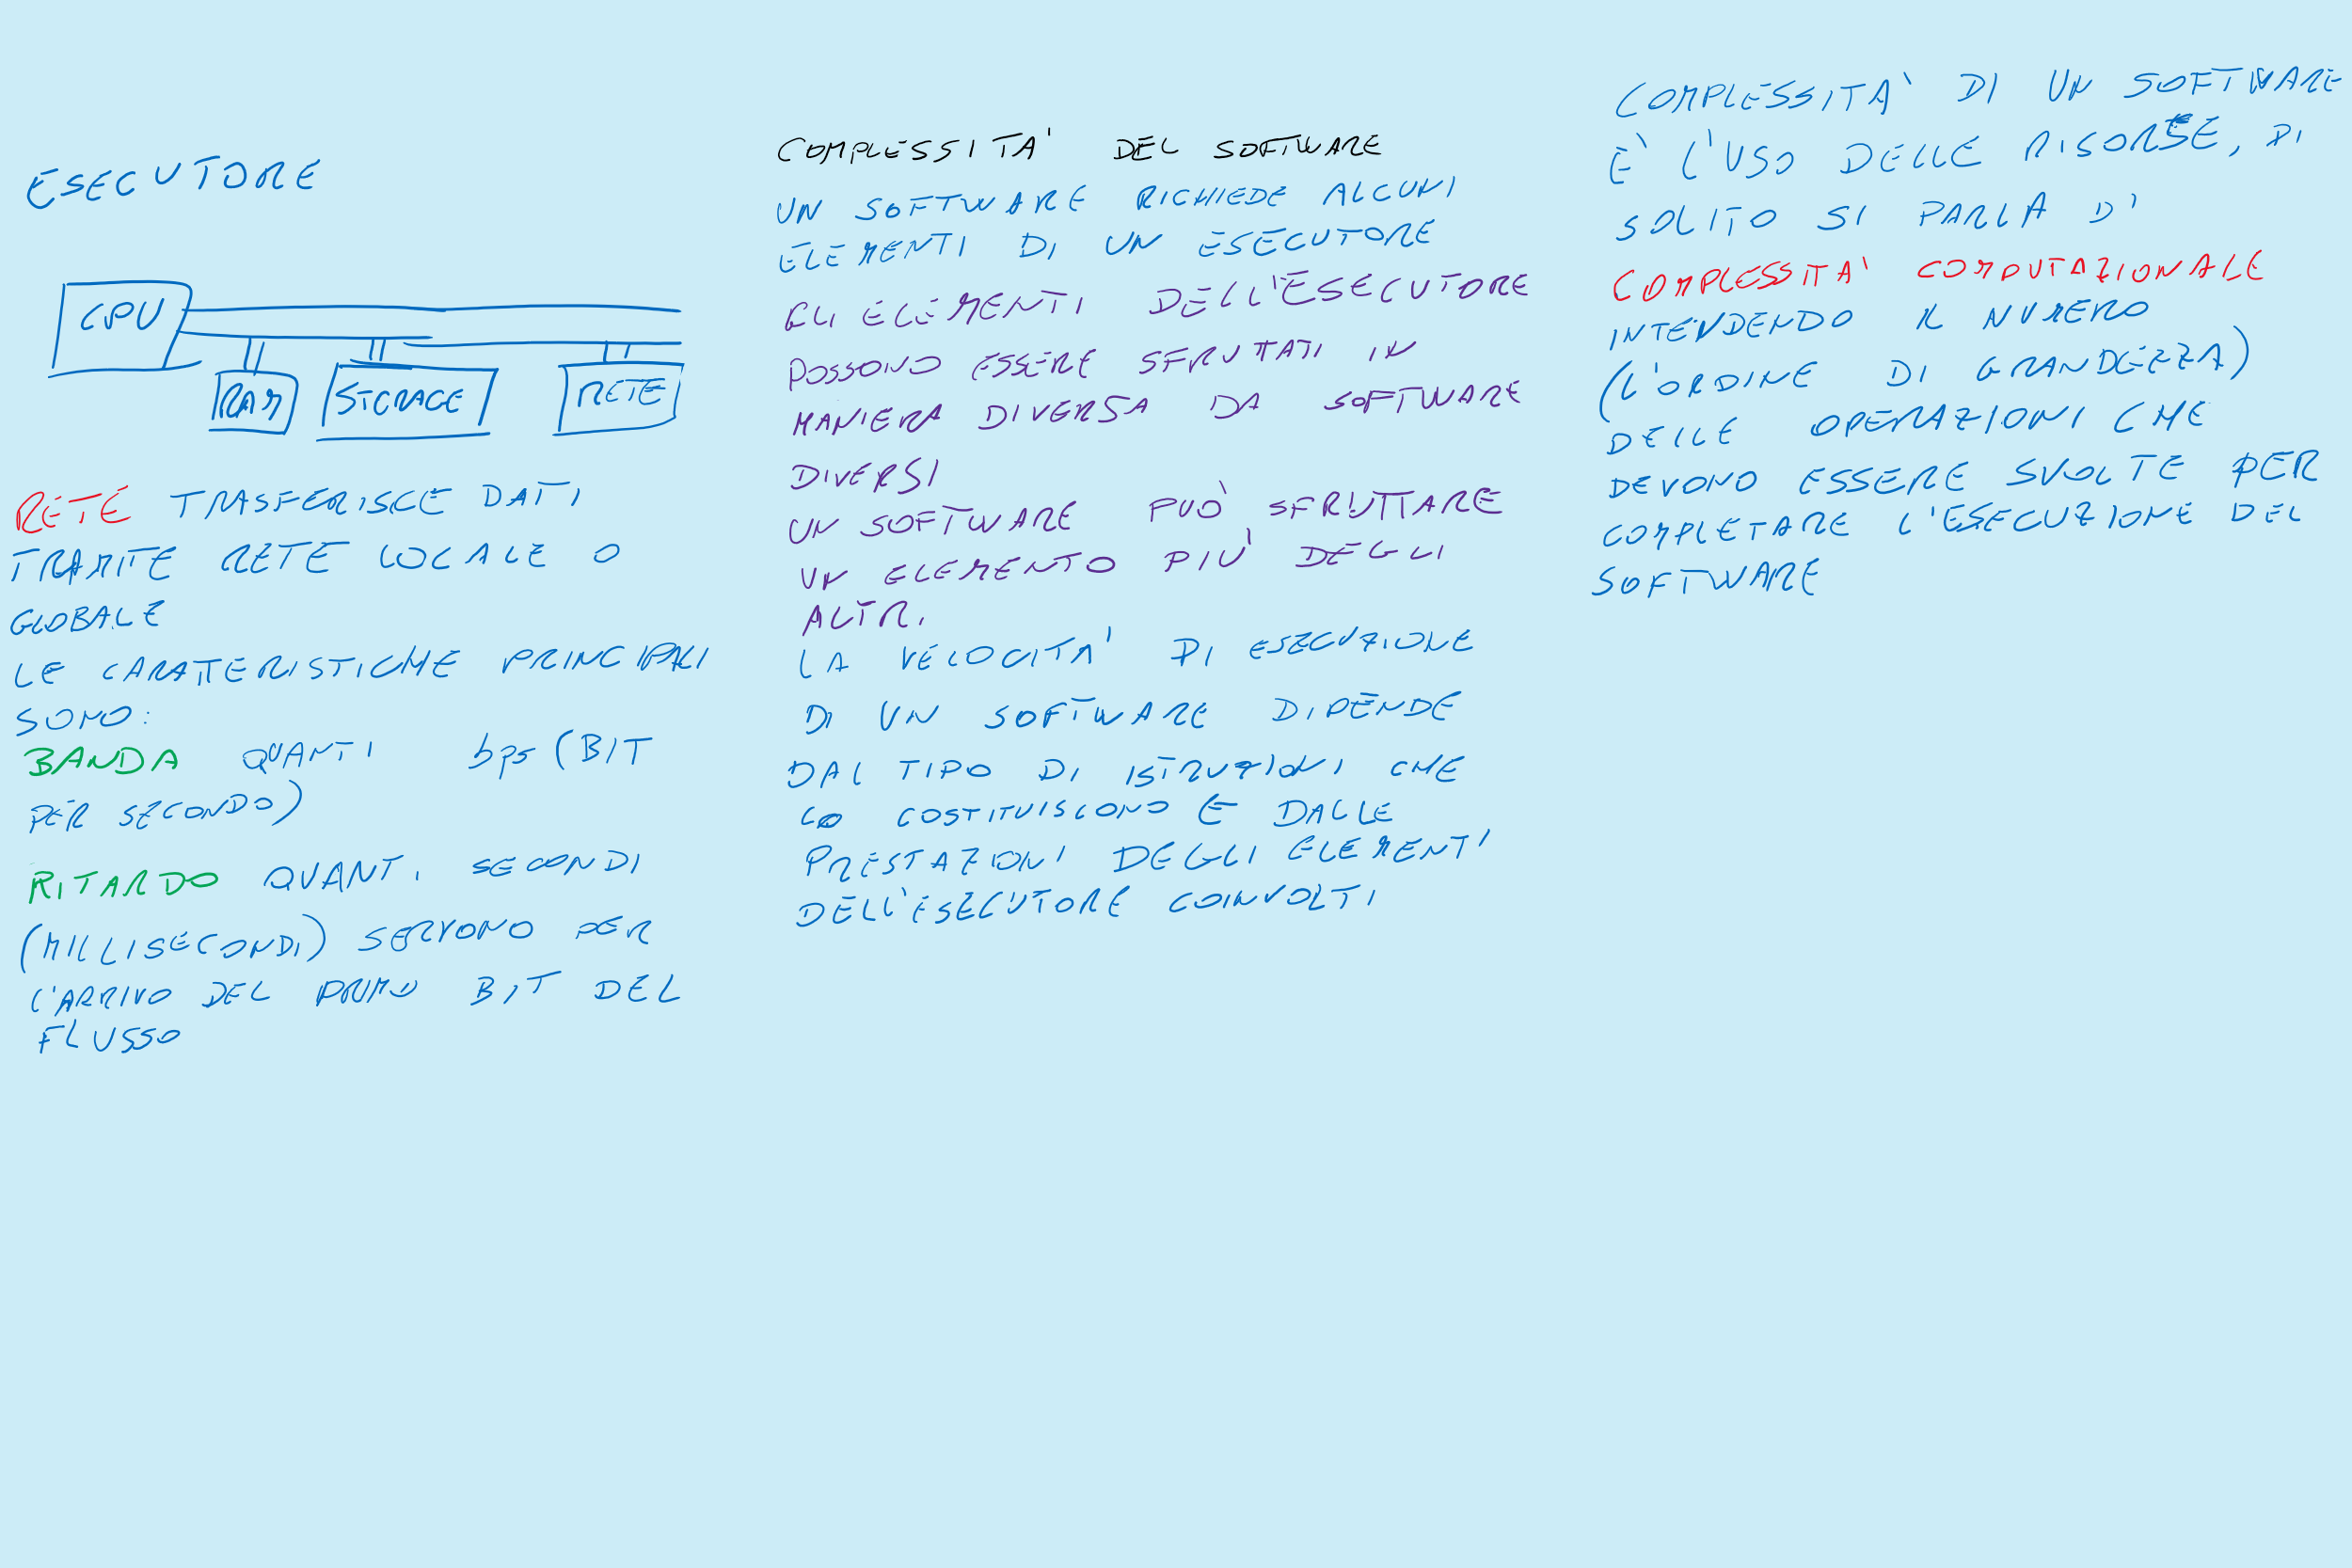 ESECUTORE
CPU
RAM
STORAGE
RETE
RETE TRASFERISCE DATI
TRAMITE RETE LOCALE O
GLOBALE
LE CARATTERISTICHE PRINCIPALI
SONO:
BANDA QUANTI bps (BIT
PER SECONDO)
RITARDO QUANTI SECONDI
(MILLISECONDI) SERVONO PER
L'ARRIVO DEL PRIMO BIT DEL
FLUSSO
COMPLESSITA' DEL SOFTWARE
UN SOFTWARE RICHIEDE ALCUNI
ELEMENTI DI UN ESECUTORE
GLI ELEMENTI DELL'ESECUTORE
POSSONO ESSERE SFRUTTATI IN
MANIERA DIVERSA DA SOFTWARE
DIVERSI
UN SOFTWARE PUO' SFRUTTARE
UN ELEMENTO PIU' DEGLI
ALTRI
LA VELOCITA' DI ESECUZIONE
DI UN SOFTWARE DIPENDE
DAL TIPO DI ISTRUZIONI CHE
LO COSTITUISCONO E DALLE
PRESTAZIONI DEGLI ELEMENTI
DELL'ESECUTORE COINVOLTI
COMPLESSITA' DI UN SOFTWARE
E' L'USO DELLE RISORSE, DI
SOLITO SI PARLA DI
COMPLESSITA' COMPUTAZIONALE
INTENDENDO IL NUMERO
(L'ORDINE DI GRANDEZZA)
DELLE OPERAZIONI CHE
DEVONO ESSERE SVOLTE PER
COMPLETARE L'ESECUZIONE DEL
SOFTWARE